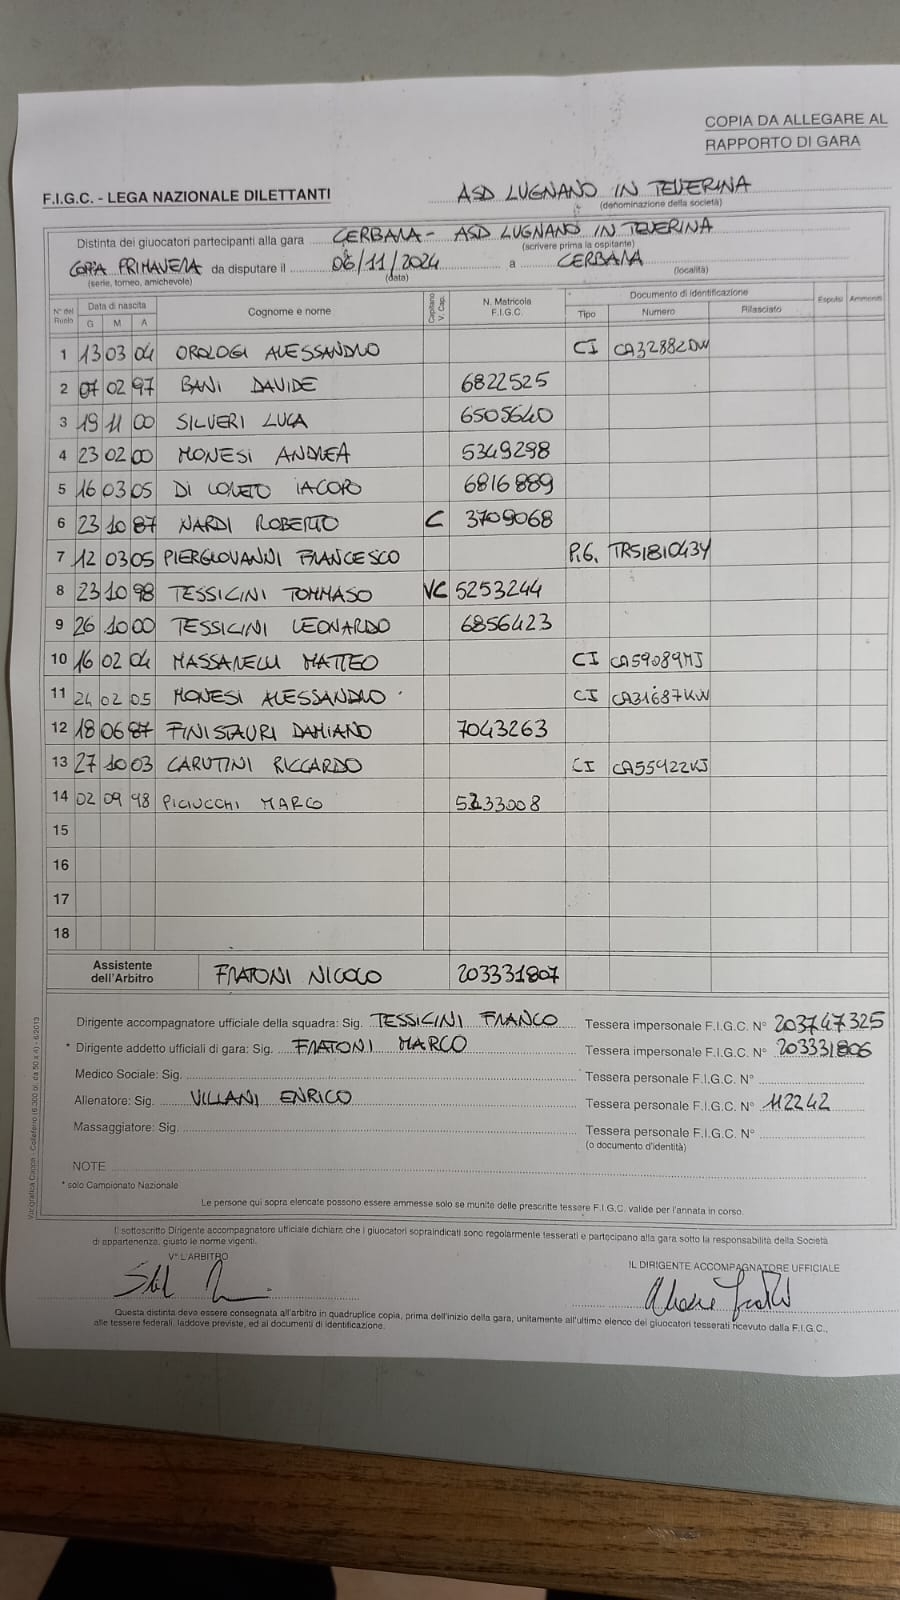 COPIA DA ALLEGARE AL
RAPPORTO DI GARA
F.I.G.C. - LEGA NAZIONALE DILETTANTI
ASD LUGNANO IN TEVERINA
(denominazione della società)
Distinta dei giuocatori partecipanti alla gara CERBARA - ASD LUGNANO IN TEVERINA
(scrivere prima la ospitante)
COPPA PRIMAVERA da disputare il 06/11/2024 a CERBARA
(serie, torneo, amichevole) (data) (località)
N° del Ruolo Data di nascita G M A Cognome e nome Capitano V. Cap. N. Matricola F.I.G.C. Documento di identificazione Tipo Numero Rilasciato Espulsi Ammoniti
1 13 03 04 OROLOGI ALESSANDRO CI CA32882DW
2 07 02 97 BANI DAVIDE 6822525
3 19 11 00 SILVERI LUCA 6505640
4 23 02 00 MONESI ANDREA 5349298
5 16 03 05 DI LORETO IACOPO 6816889
6 23 10 87 NARDI ROBERTO C 3709068
7 12 03 05 PIERGIOVANNI FRANCESCO P.G. TR5181043Y
8 23 10 98 TESSICINI TOMMASO VC 5253244
9 26 10 00 TESSICINI LEONARDO 6856423
10 16 02 04 MASSARELLI MATTEO CI CA59089MJ
11 24 02 05 MONESI ALESSANDRO CI CA31687KW
12 18 06 87 FINISTAURI DAMIANO 7043263
13 27 10 03 CARUTINI RICCARDO CI CA55922KJ
14 02 09 98 PICIUCCHI MARCO 5233008
15
16
17
18
Assistente dell'Arbitro FRATONI NICOLO 203331807
Dirigente accompagnatore ufficiale della squadra: Sig. TESSICINI FRANCO Tessera impersonale F.I.G.C. N° 203747325
* Dirigente addetto ufficiali di gara: Sig. FRATONI MARCO Tessera impersonale F.I.G.C. N° 203331806
Medico Sociale: Sig. Tessera personale F.I.G.C. N°
Allenatore: Sig. VILLANI ENRICO Tessera personale F.I.G.C. N° 112242
Massaggiatore: Sig. Tessera personale F.I.G.C. N°
(o documento d'identità)
NOTE
* solo Campionato Nazionale
Le persone qui sopra elencate possono essere ammesse solo se munite delle prescritte tessere F.I.G.C. valide per l'annata in corso.
Il sottoscritto Dirigente accompagnatore ufficiale dichiara che i giuocatori sopraindicati sono regolarmente tesserati e partecipano alla gara sotto la responsabilità della Società
di appartenenza, giusto le norme vigenti.
V° L'ARBITRO IL DIRIGENTE ACCOMPAGNATORE UFFICIALE
Questa distinta deve essere consegnata all'arbitro in quadruplice copia, prima dell'inizio della gara, unitamente all'ultimo elenco dei giuocatori tesserati ricevuto dalla F.I.G.C.,
alle tessere federali, laddove previste, ed ai documenti di identificazione.